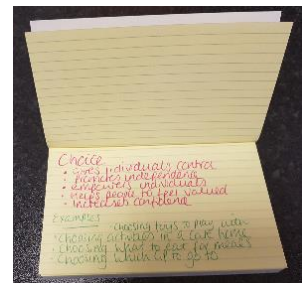 Choice
• gives individuals control
• promotes independence
• empowers individuals
• helps people to feel valued
• increases confidence
Examples
- choosing toys to play with
- choosing activities in a care home
- choosing what to eat for meals
- choosing which to go to